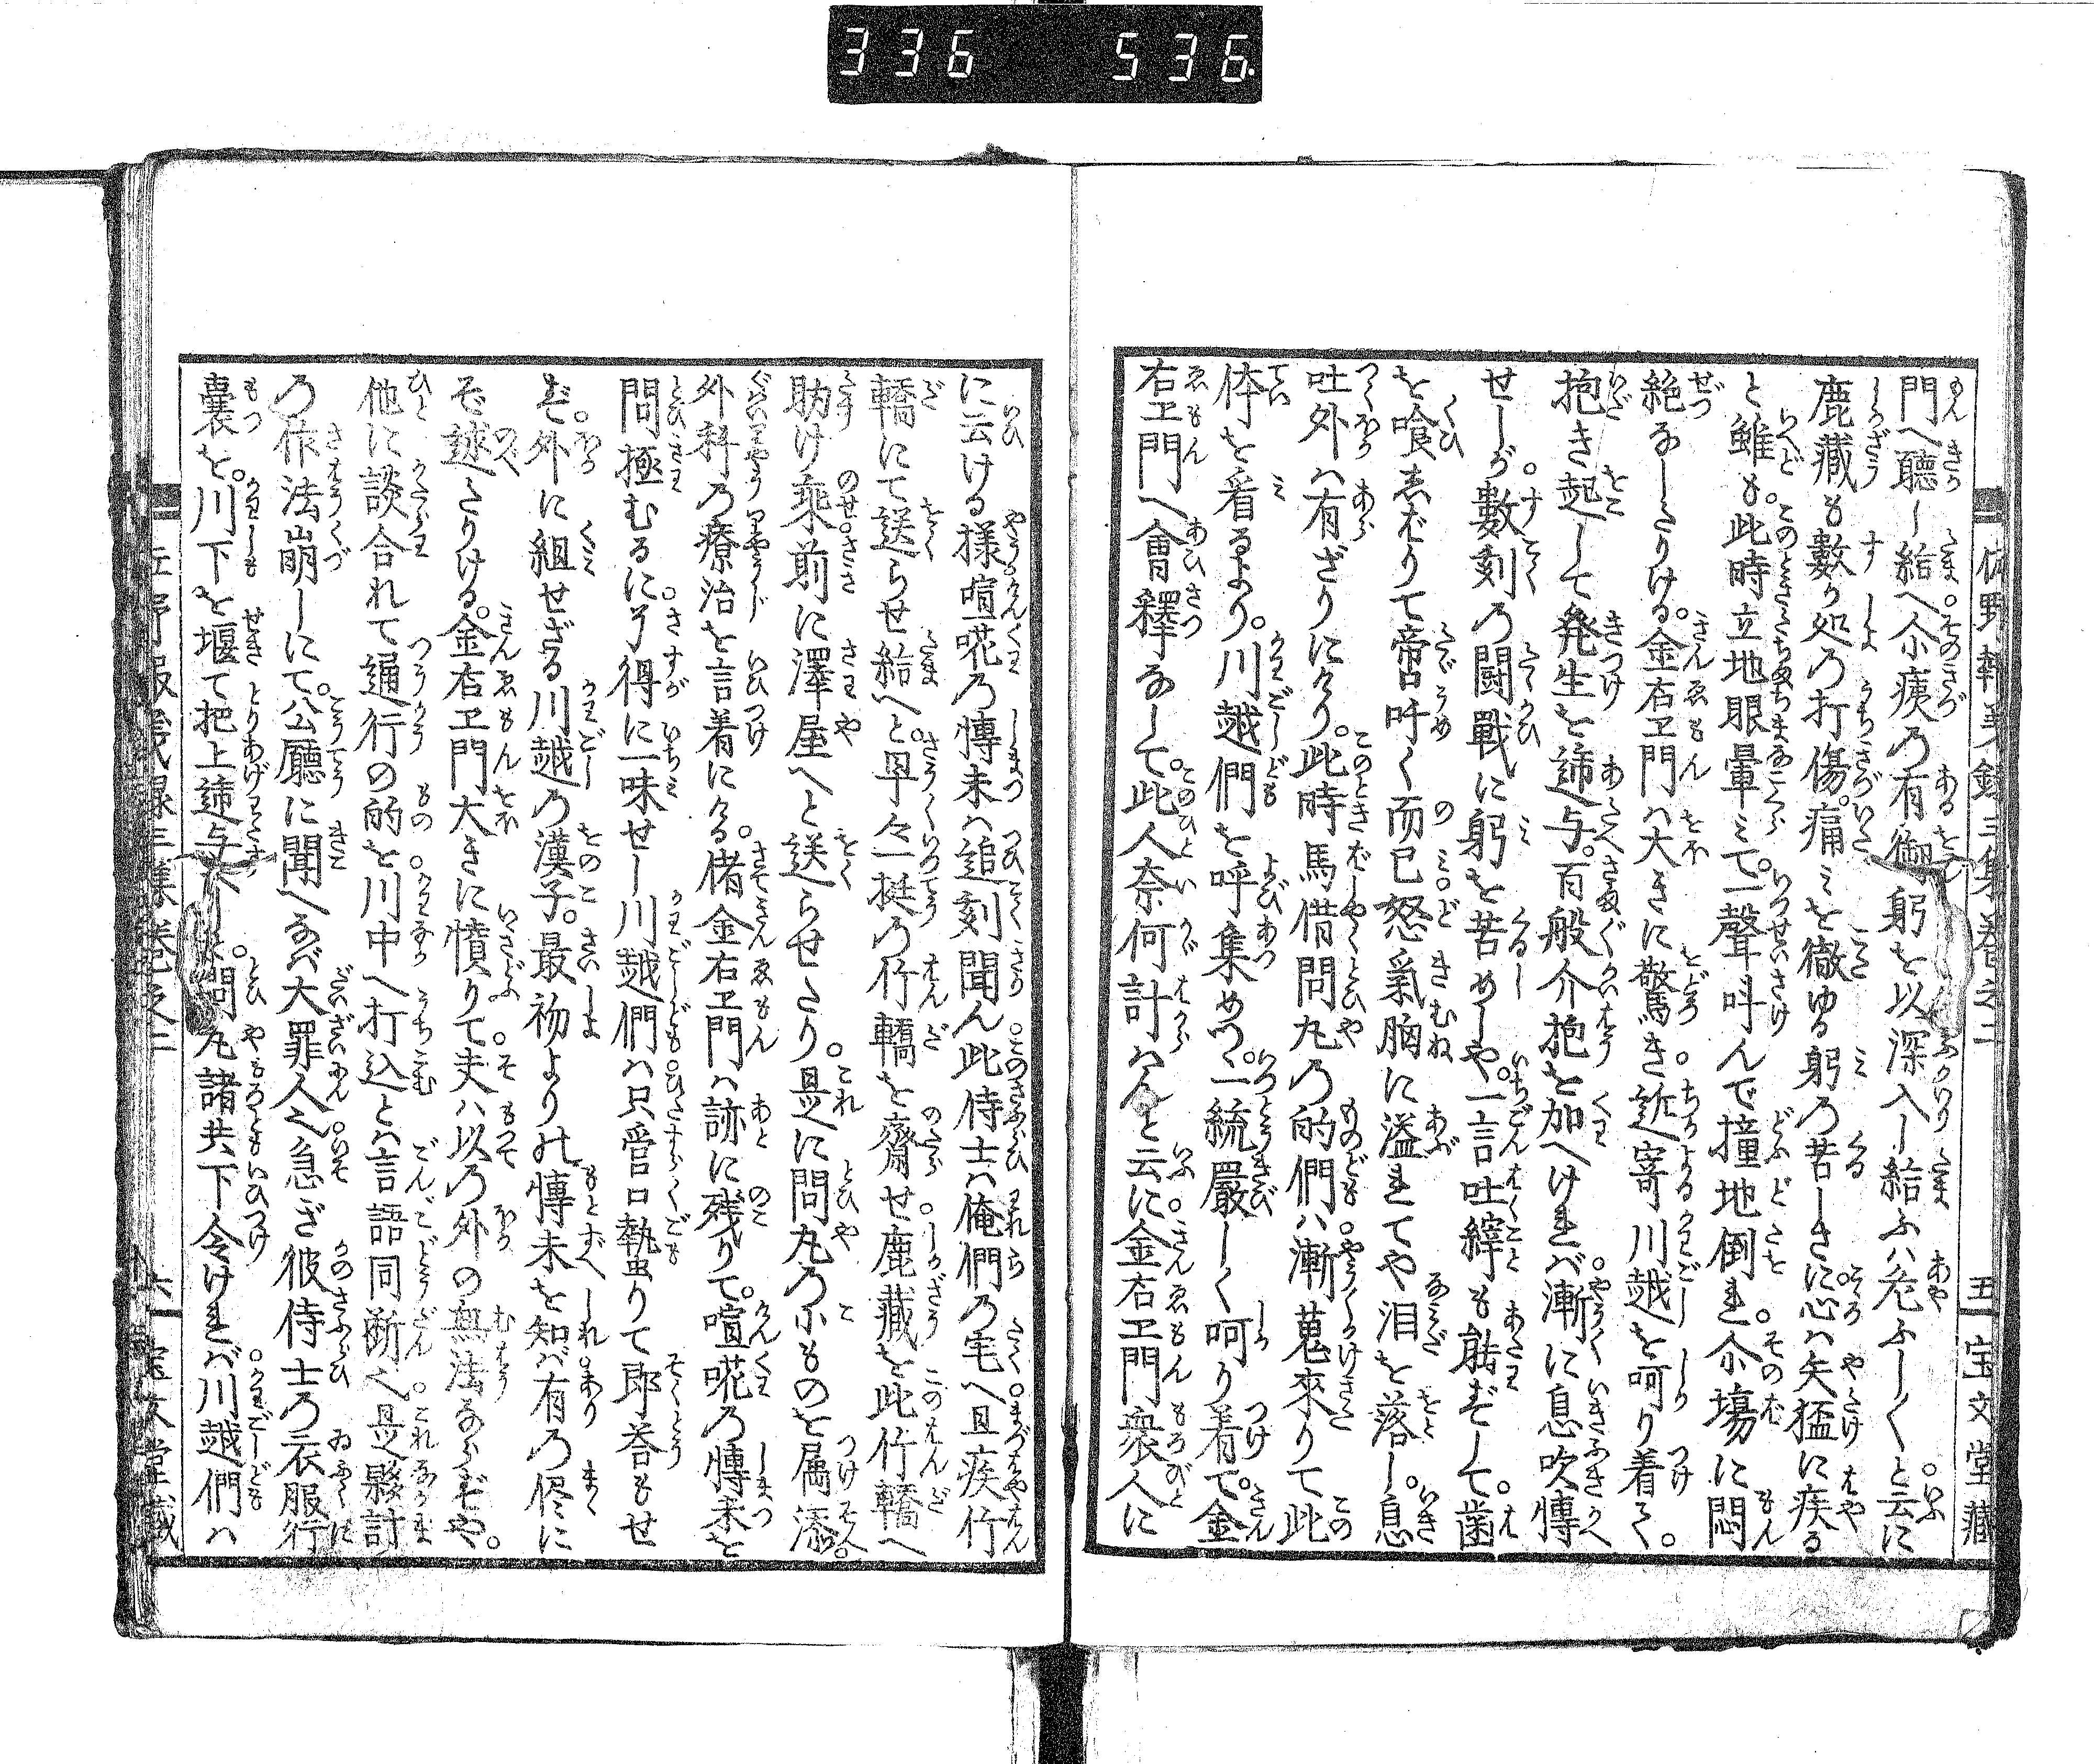 336 536
佐野報義録三集巻之二 五 宝文堂蔵
門へ聴し給へ尒痍の有御躬を以深入し給ふハ危ふしくと云に
鹿蔵も數ヶ処の打傷。痛ミを徹ゆる躬の苦しさに。心ハ矢猛に疾る
と雖も。此時立地眼暈ミて。一聲叫んで撞地倒れ。尒塲に悶
絶なしたりける。金右エ門ハ大きに驚き。近寄川越を呵り着て。
抱き起して発生を遞与。百般介抱を加へけれバ。漸に息吹慱
せしが。數刻の闘戰に躬を苦めしや。一言吐繹も能ずして。歯
を喰しばりて啼吽く而已。怒氣胸に溢れてや泪を落し。息
吐外ハ有ざりにけり。此時馬借問丸の的們ハ。漸蒐來りて此
体を看るより。川越們を呼集めつ。一統嚴しく呵り着て。金
右エ門へ會釋なして。此人奈何計はんと云に。金右エ門衆人に
に云ける様。喧𠵅の慱末ハ追刻聞ん。此侍士ハ俺們の宅へ。且疾竹
轎にて送らせ給へと。早々一挺の竹轎を齎せ。鹿蔵を此竹轎へ
助け乘。前に澤屋へと送らせたり。是に問丸の小ものを属添。
外科の療治を言着にける。偖金右エ門ハ跡に残りて。喧𠵅の慱末を
問極むるに。了得に一味せし川越們ハ。只管口執りて郎荅もせ
ず。外に組せざる川越の漢子。最初よりの慱末を知バ。有の侭に
ぞ越たりける。金右エ門大きに憤りて。夫ハ以の外の無法ならずや。
他に談合れて通行の的を。川中へ打込とハ言語同断也。是夥計
の作法崩しにて。公廳に聞へなバ大罪人也。急ぎ彼侍士の衣服行
囊を。川下を堰て把上遞与。問丸諸共下令けれバ。川越們ハ
六 宝文堂蔵